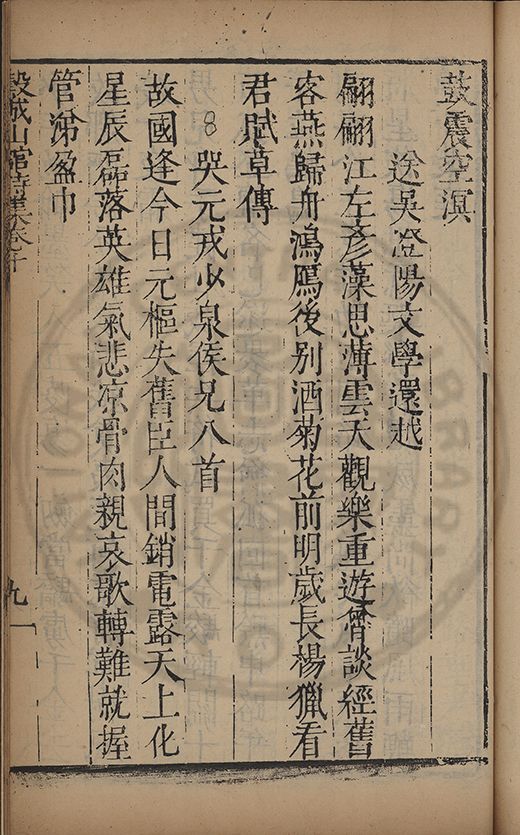 鼓震空溟
送吳澄陽文學還越
翩翩江左彥藻思薄雲天觀樂重遊魯談經舊
客燕歸舟鴻鴈後別酒菊花前明歲長楊獵看
君賦草傳
8 哭元戎少泉侯兄八首
故國逢今日元樞失舊臣人間銷電露天上化
星辰磊落英雄氣悲凉骨肉親哀歌轉難就握
管涕盈巾
穀城山館詩集卷之十
九一